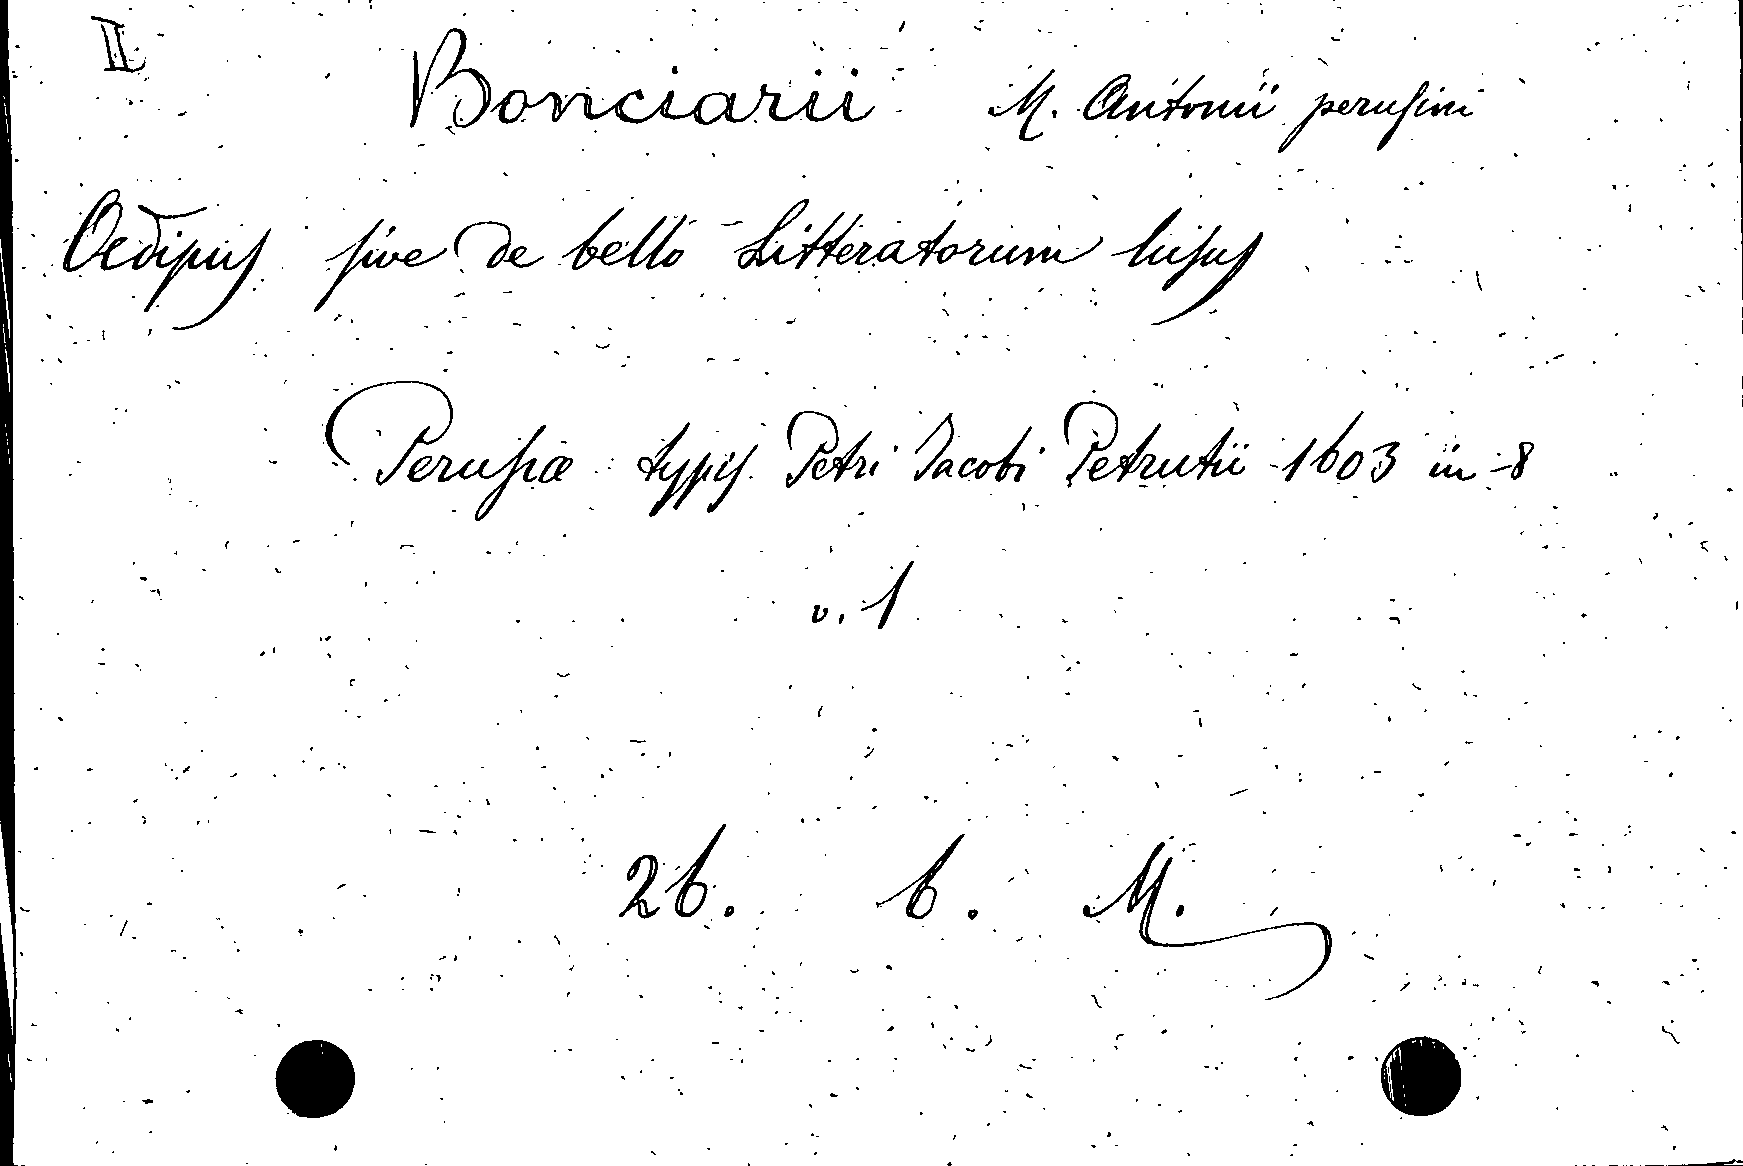 II
Bonciarii M. Antonii perusini
Oedipus sive de bello Litteratorum lusus
Perusiæ typis Petri Jacobi Petrutii 1603 in-8
v. 1
26. 6. M.